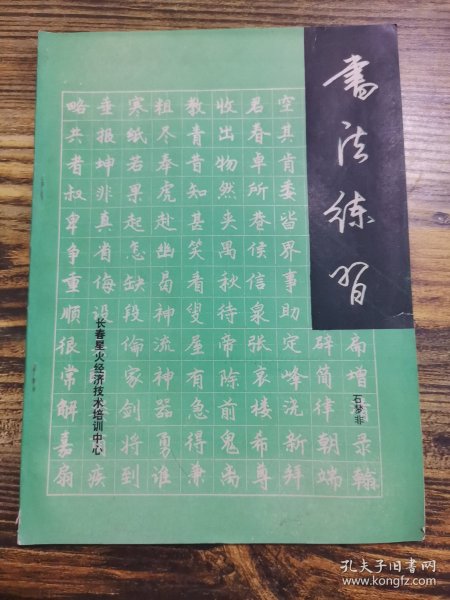 書法练習
石梦非
空其肯委皆界事助定峰洗新拜
君春卓所卷侯信泉张衰楼希尊
收出物然夹禺秋待帝除前鬼离
教青昔知甚笑看叟屋有急得兼
粗尽奉虎赴幽曷神流神器勇谁
寒纸若果起怎缺段倫家剑将到
垂报坤非真省侮设疾
略共者叔卑争重顺很常解嘉扇
辟简律朝端
增录翰
长春星火经济技术培训中心
孔夫子旧书网
www.kongfz.com